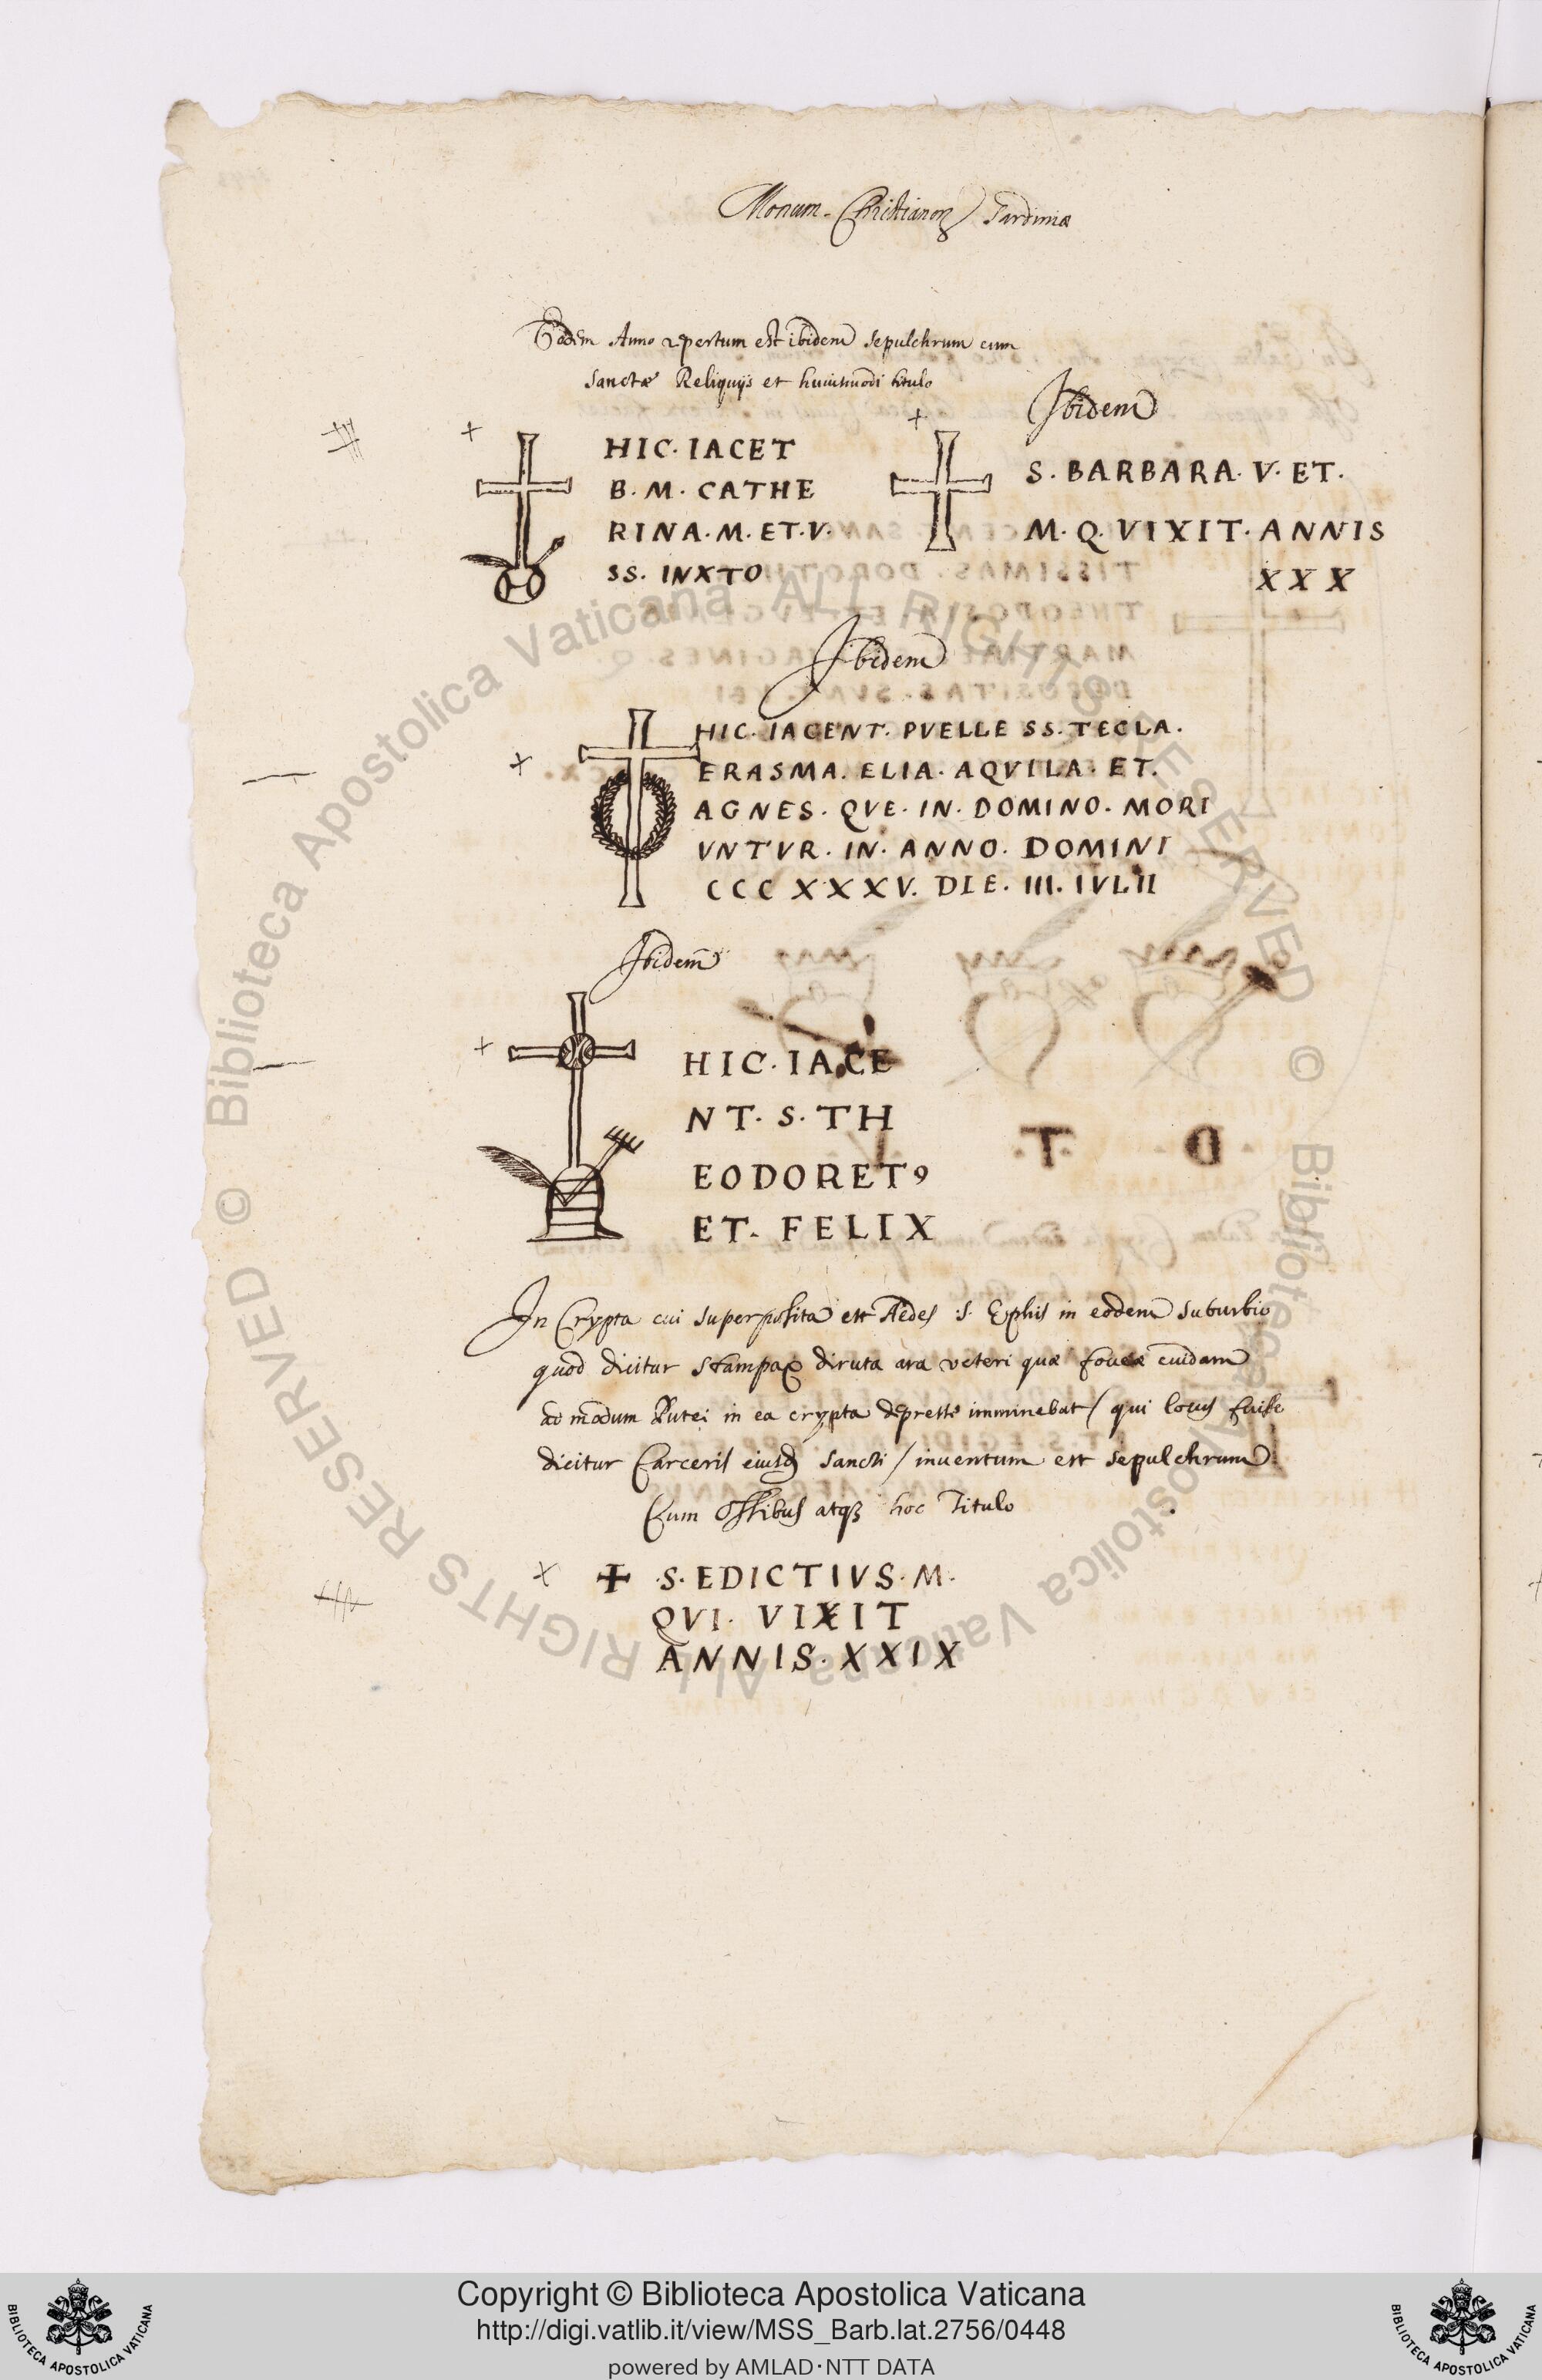 Monum. Christianoꝝ Sardiniæ
Eodem Anno repertum est ibidem sepulchrum cum
Sanctæ Reliquijs et huiusmodi titulo
HIC. IACET
B. M. CATHE
RINA. M. ET. V.
SS. INXTO
Ibidem
S. BARBARA. V. ET.
M. Q. VIXIT. ANNIS
XXX
Ibidem
HIC. IACENT. PVELLE SS. TECLA.
ERASMA. ELIA. AQVILA. ET.
AGNES. QVE. IN. DOMINO. MORI
VNTVR. IN. ANNO. DOMINI
CCC XXXV. DIE. III. IVLII
Ibidem
HIC. IACE
NT. S. TH
EODORET9
ET. FELIX
In Crypta cui superposita est Aedes S. Ephis in eodem suburbio
quod dicitur Stampax diruta ara veteri quæ foueæ cuidam
ad modum Putei in ea crypta depressæ imminebat / qui locus fuisse
dicitur Carceris eiusd Sancti / inuentum est sepulchrum
Cum Ossibus atqꝫ hoc Titulo
+ .S. EDICTIVS. M.
QVI. VIXIT
ANNIS. XXIX
© Biblioteca Apostolica Vaticana ALL RIGHTS RESERVED © Biblioteca Apostolica Vaticana ALL RIGHTS RESERVED
Copyright © Biblioteca Apostolica Vaticana
http://digi.vatlib.it/view/MSS_Barb.lat.2756/0448
powered by AMLAD·NTT DATA
BIBLIOTECA APOSTOLICA VATICANA
BIBLIOTECA APOSTOLICA VATICANA